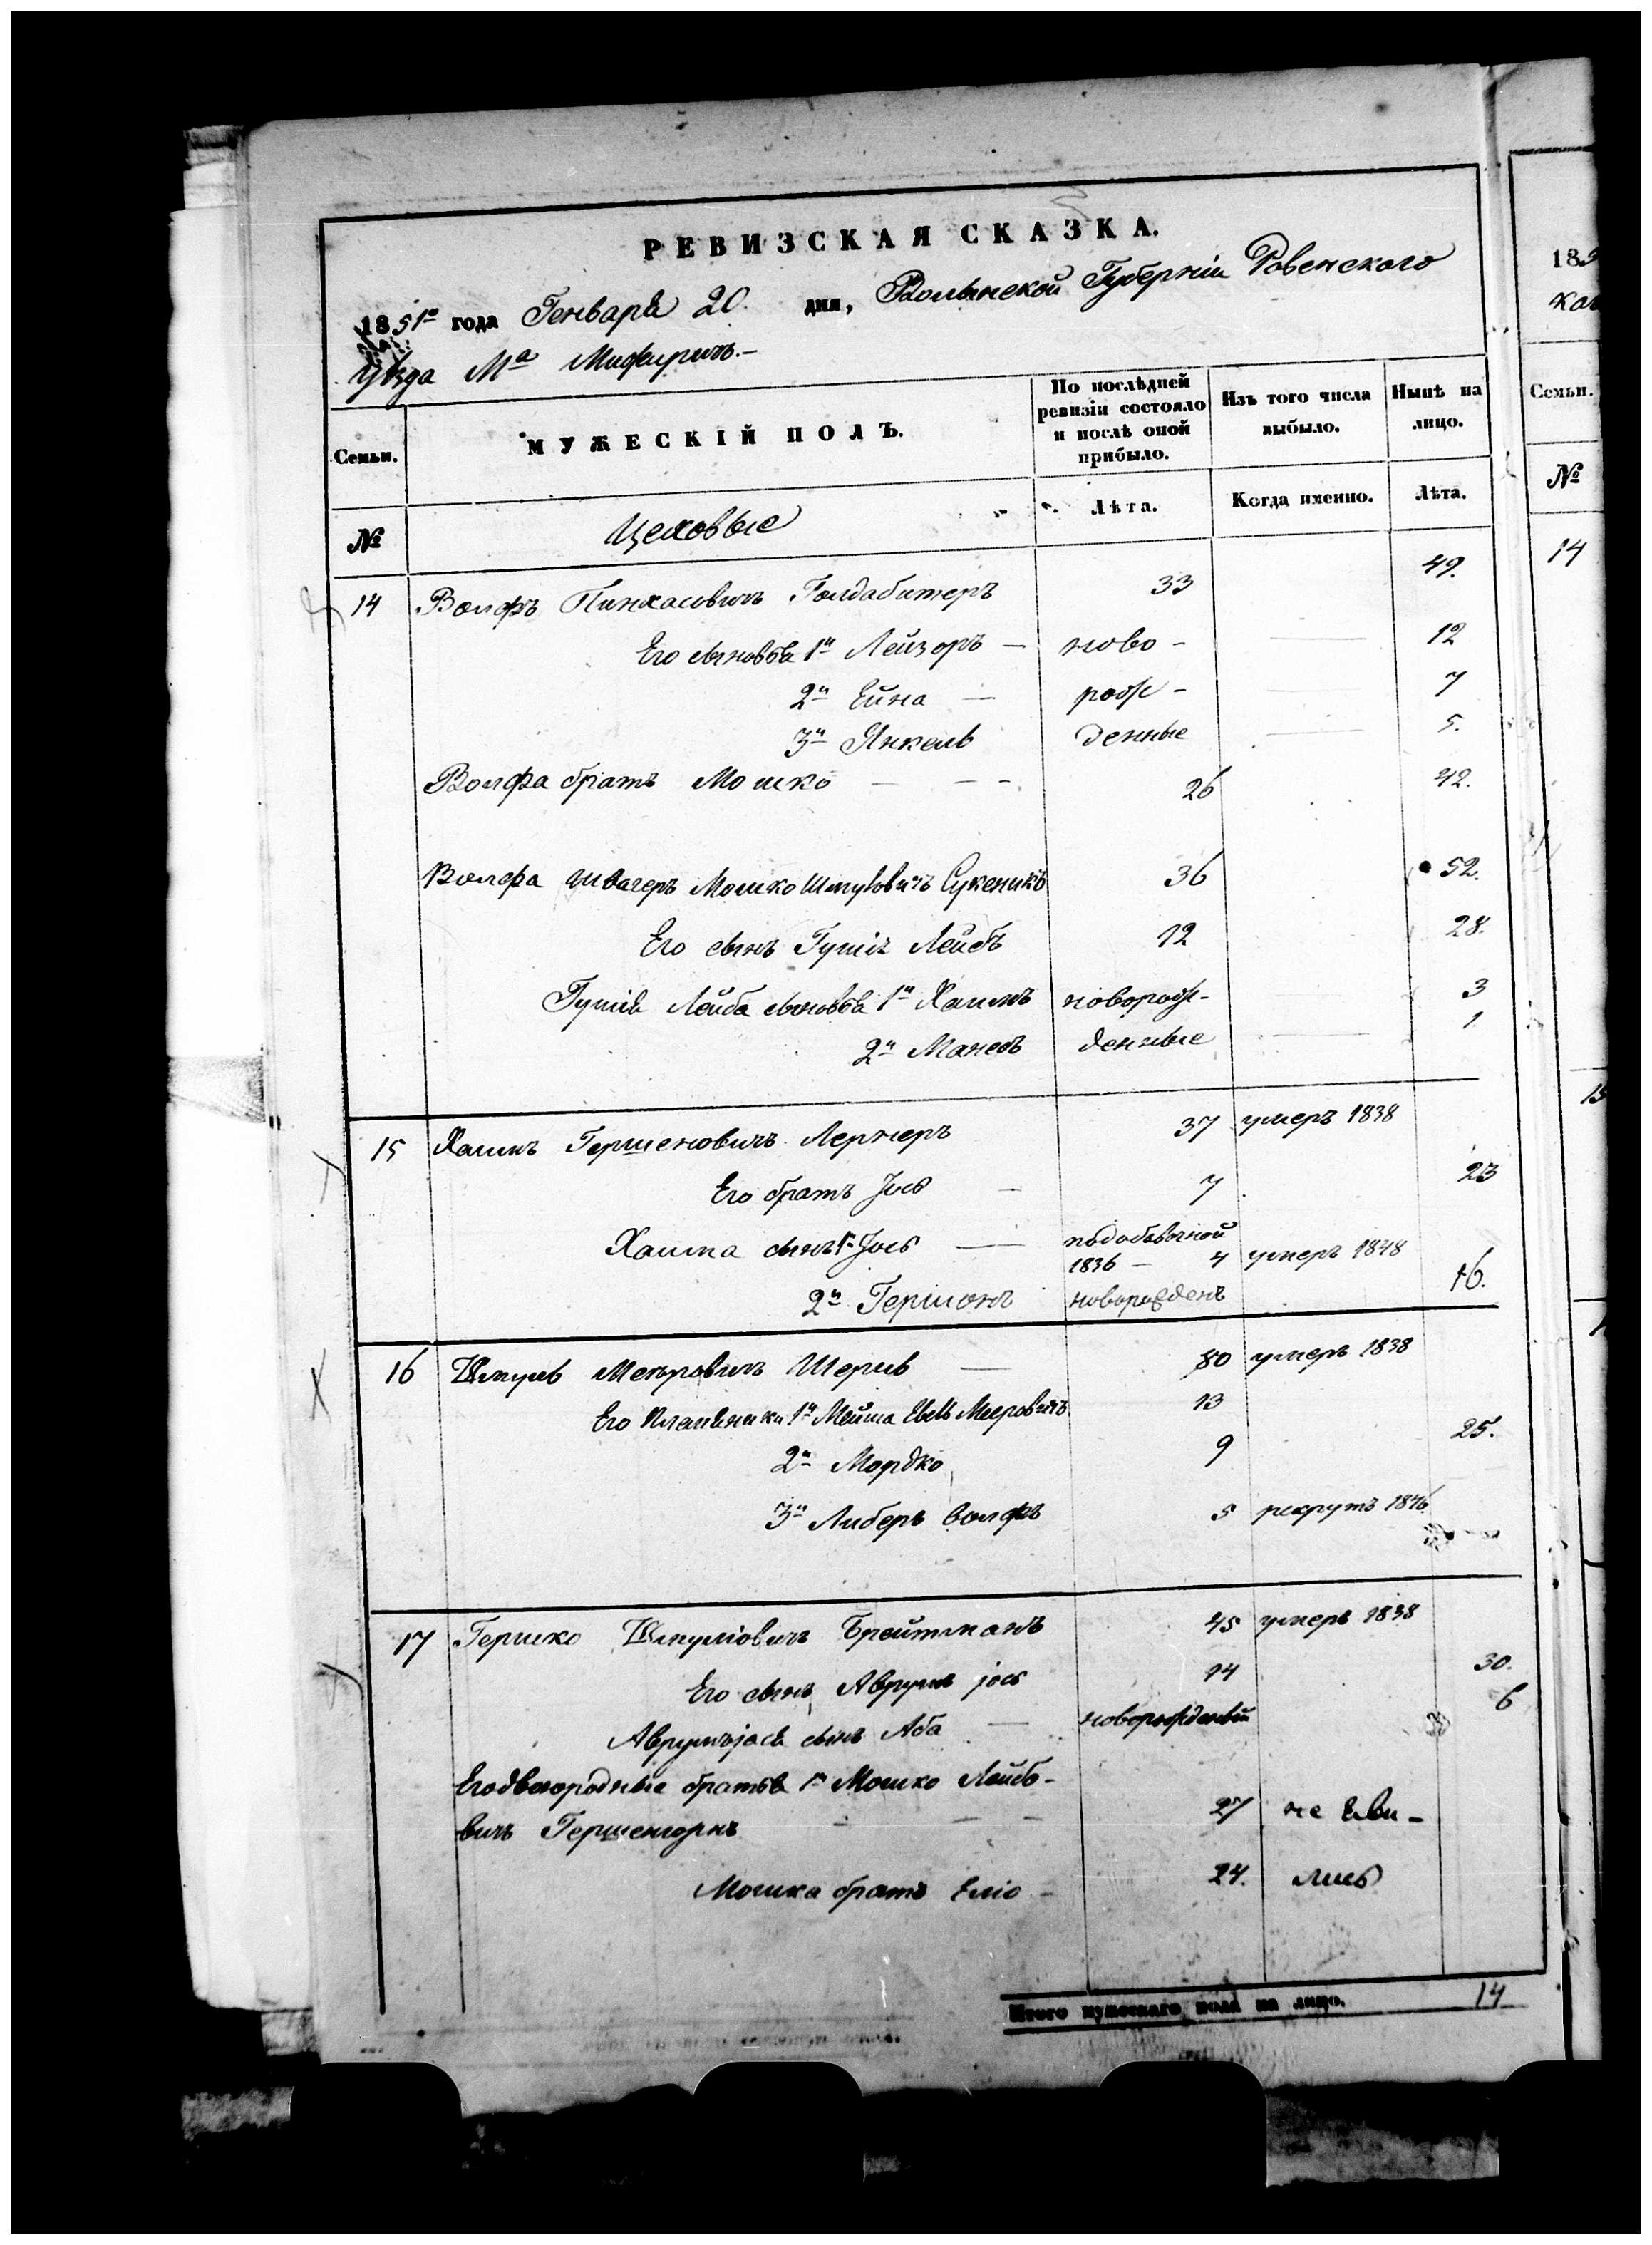 РЕВИЗСКАЯ СКАЗКА.
1851го года Генваря 20. дня, Волынской Губерніи Ровенского
уѣзда Ма Межиричъ.-
Семьи. МУЖЕСКІЙ ПОЛЪ. По послѣдней ревизіи состояло и послѣ оной прибыло. Изъ того числа выбыло. Нынѣ на лицо.
№ Цеховые Лѣта. Когда именно. Лѣта.
14 Волфъ Пинхасовичъ Голдабитеръ 33 49.
Его сыновья 1й Лейзоръ — ново- 12
2й Ейна — рож- 7
3й Янкель денные 5.
Волфа братъ Мошко — 26 42.
Волфа швагеръ Мошко Шмулёвичъ Сукеникъ 36 52.
Его сынъ Гулшіа Лейбъ 12 28.
Лейба сыновья 1й Хаимъ новорож- 3
2й Манесъ денные 1
15 Хаимъ Гершеновичъ Лернеръ 37 умеръ 1838
Его братъ Іось — 7 23
Хаима сынъ 1й Іось — 1836 — 4 умеръ 1848
2й Гершонъ новорожденъ 16.
16 Шмуль Меяровичъ Шерль — 80 умеръ 1838
Его племяники 1й Мейша Евель Мееровичъ 13
2й Мордко 9 25.
3й Либеръ Волфъ 5 рекрутъ 1846
17 Гершко Шмуліовичъ Брейтманъ 45 умеръ 1838
Его сынъ Аврумъ іось 14 30.
Аврумъ іося сынъ Аба — новорожденый 6
Его двоюродные братья 1й Мошко Лейбо-
вичъ Гершенгорнъ 27 не яви-
Мошка братъ Еліо - 24. лись
Итого мужескаго пола на лицо. 14
185
Семьи.
№
14